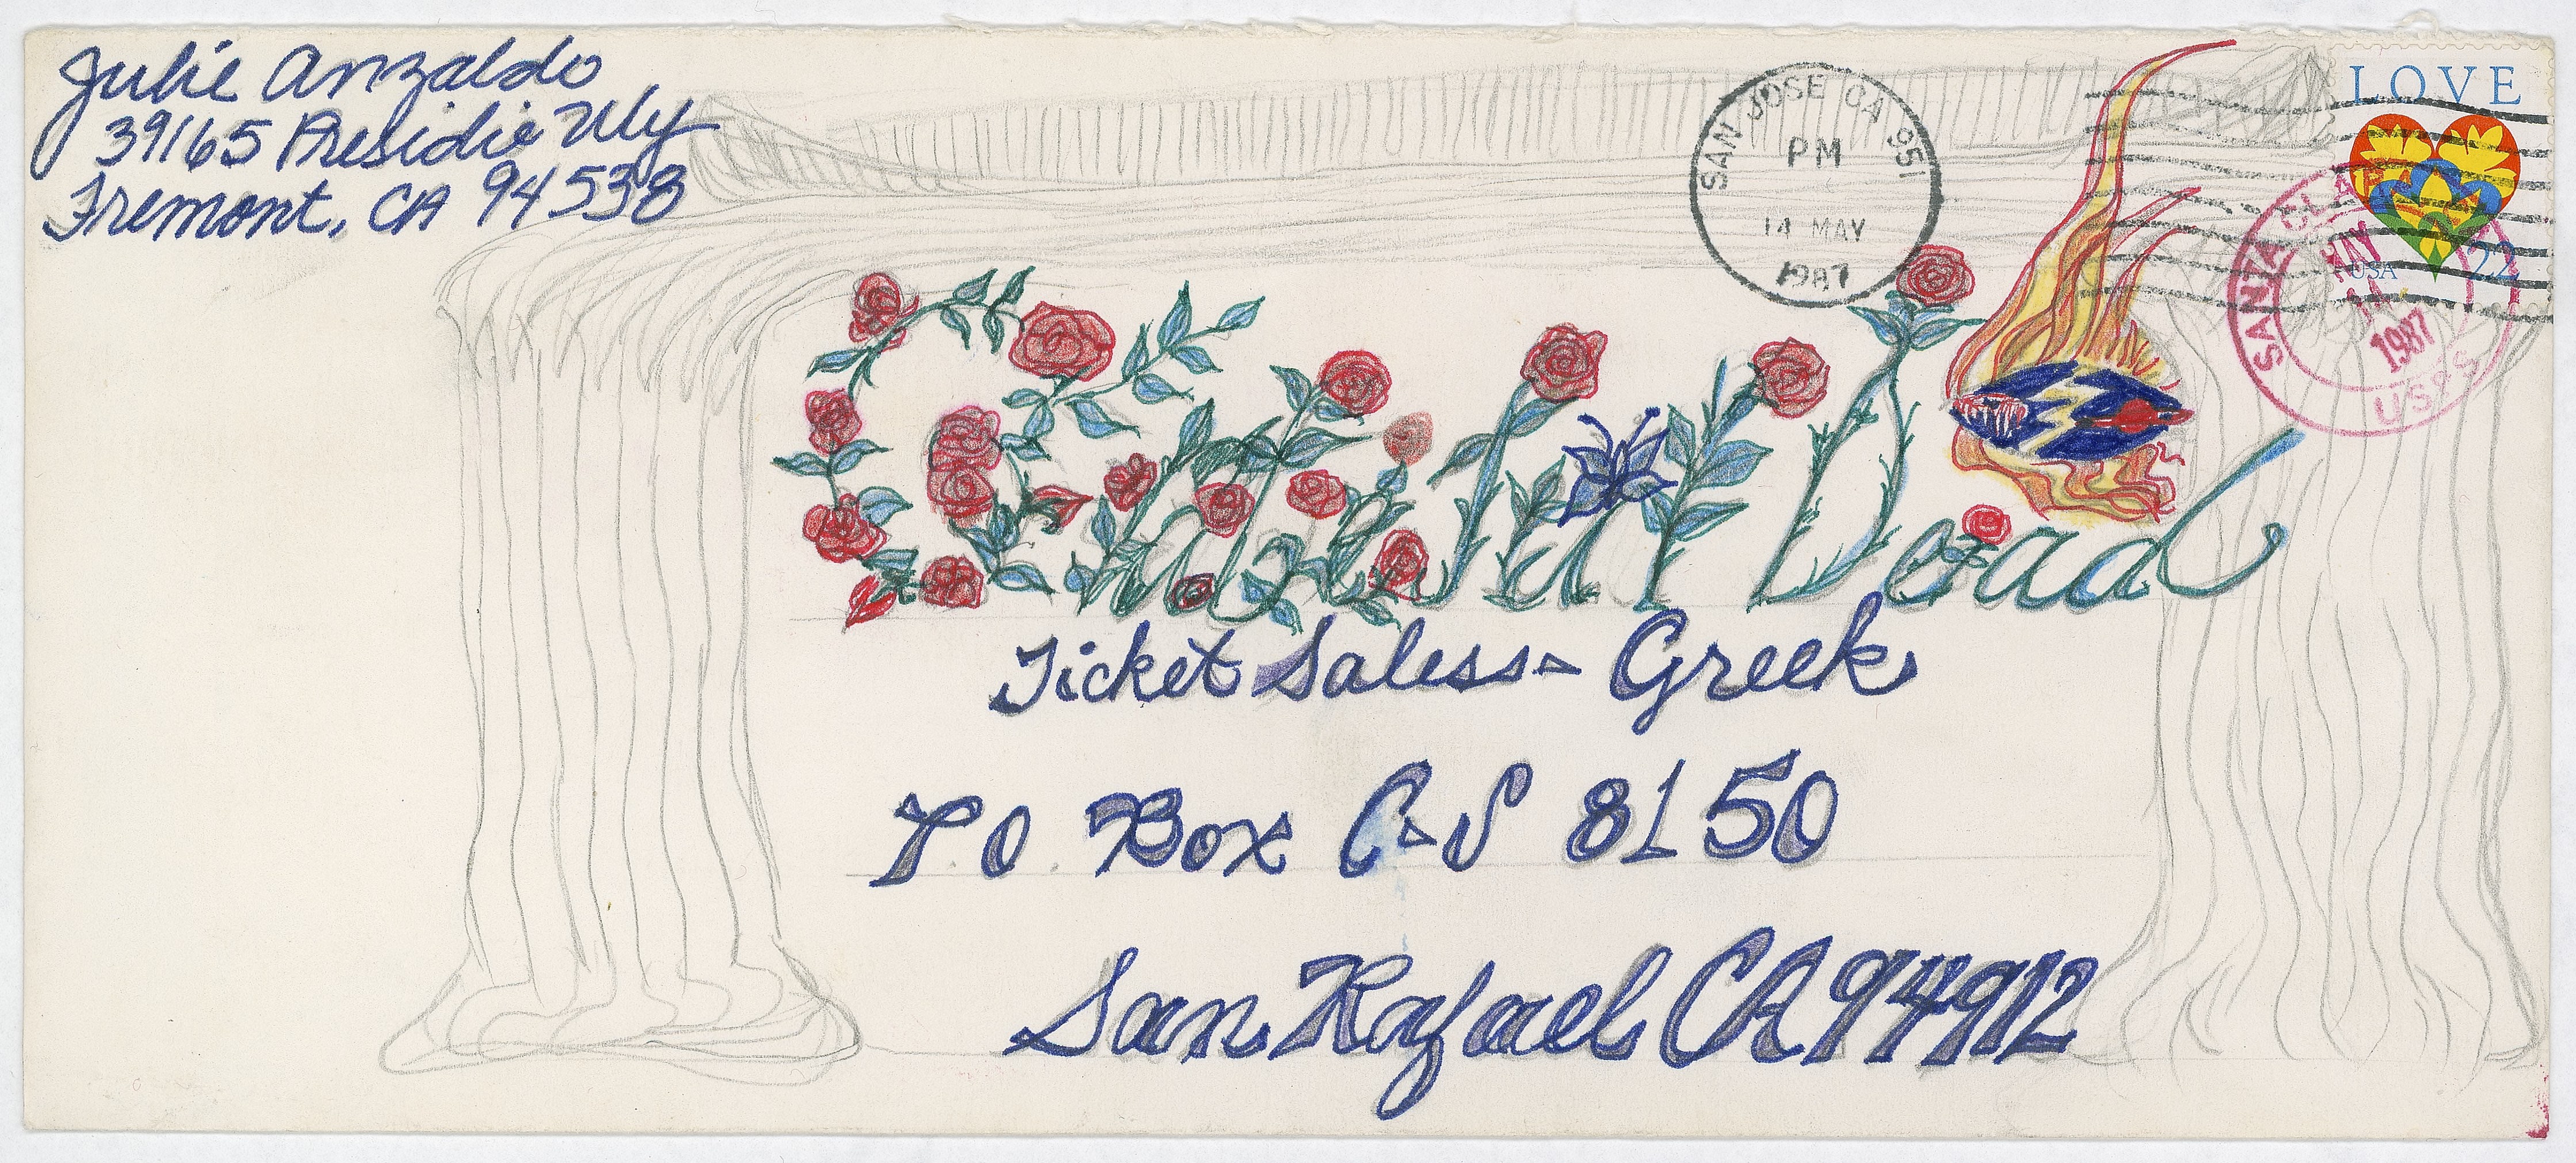 Julie Anzaldo
39165 Presidio Wy
Fremont, CA 94538
SAN JOSE CA 951
PM
14 MAY
1987
LOVE
USA 22
SANTA CLARA
MAY
14
1987
USPS
Grateful Dead
Ticket Sales - Greek
PO Box C-S 8150
San Rafael CA 94912